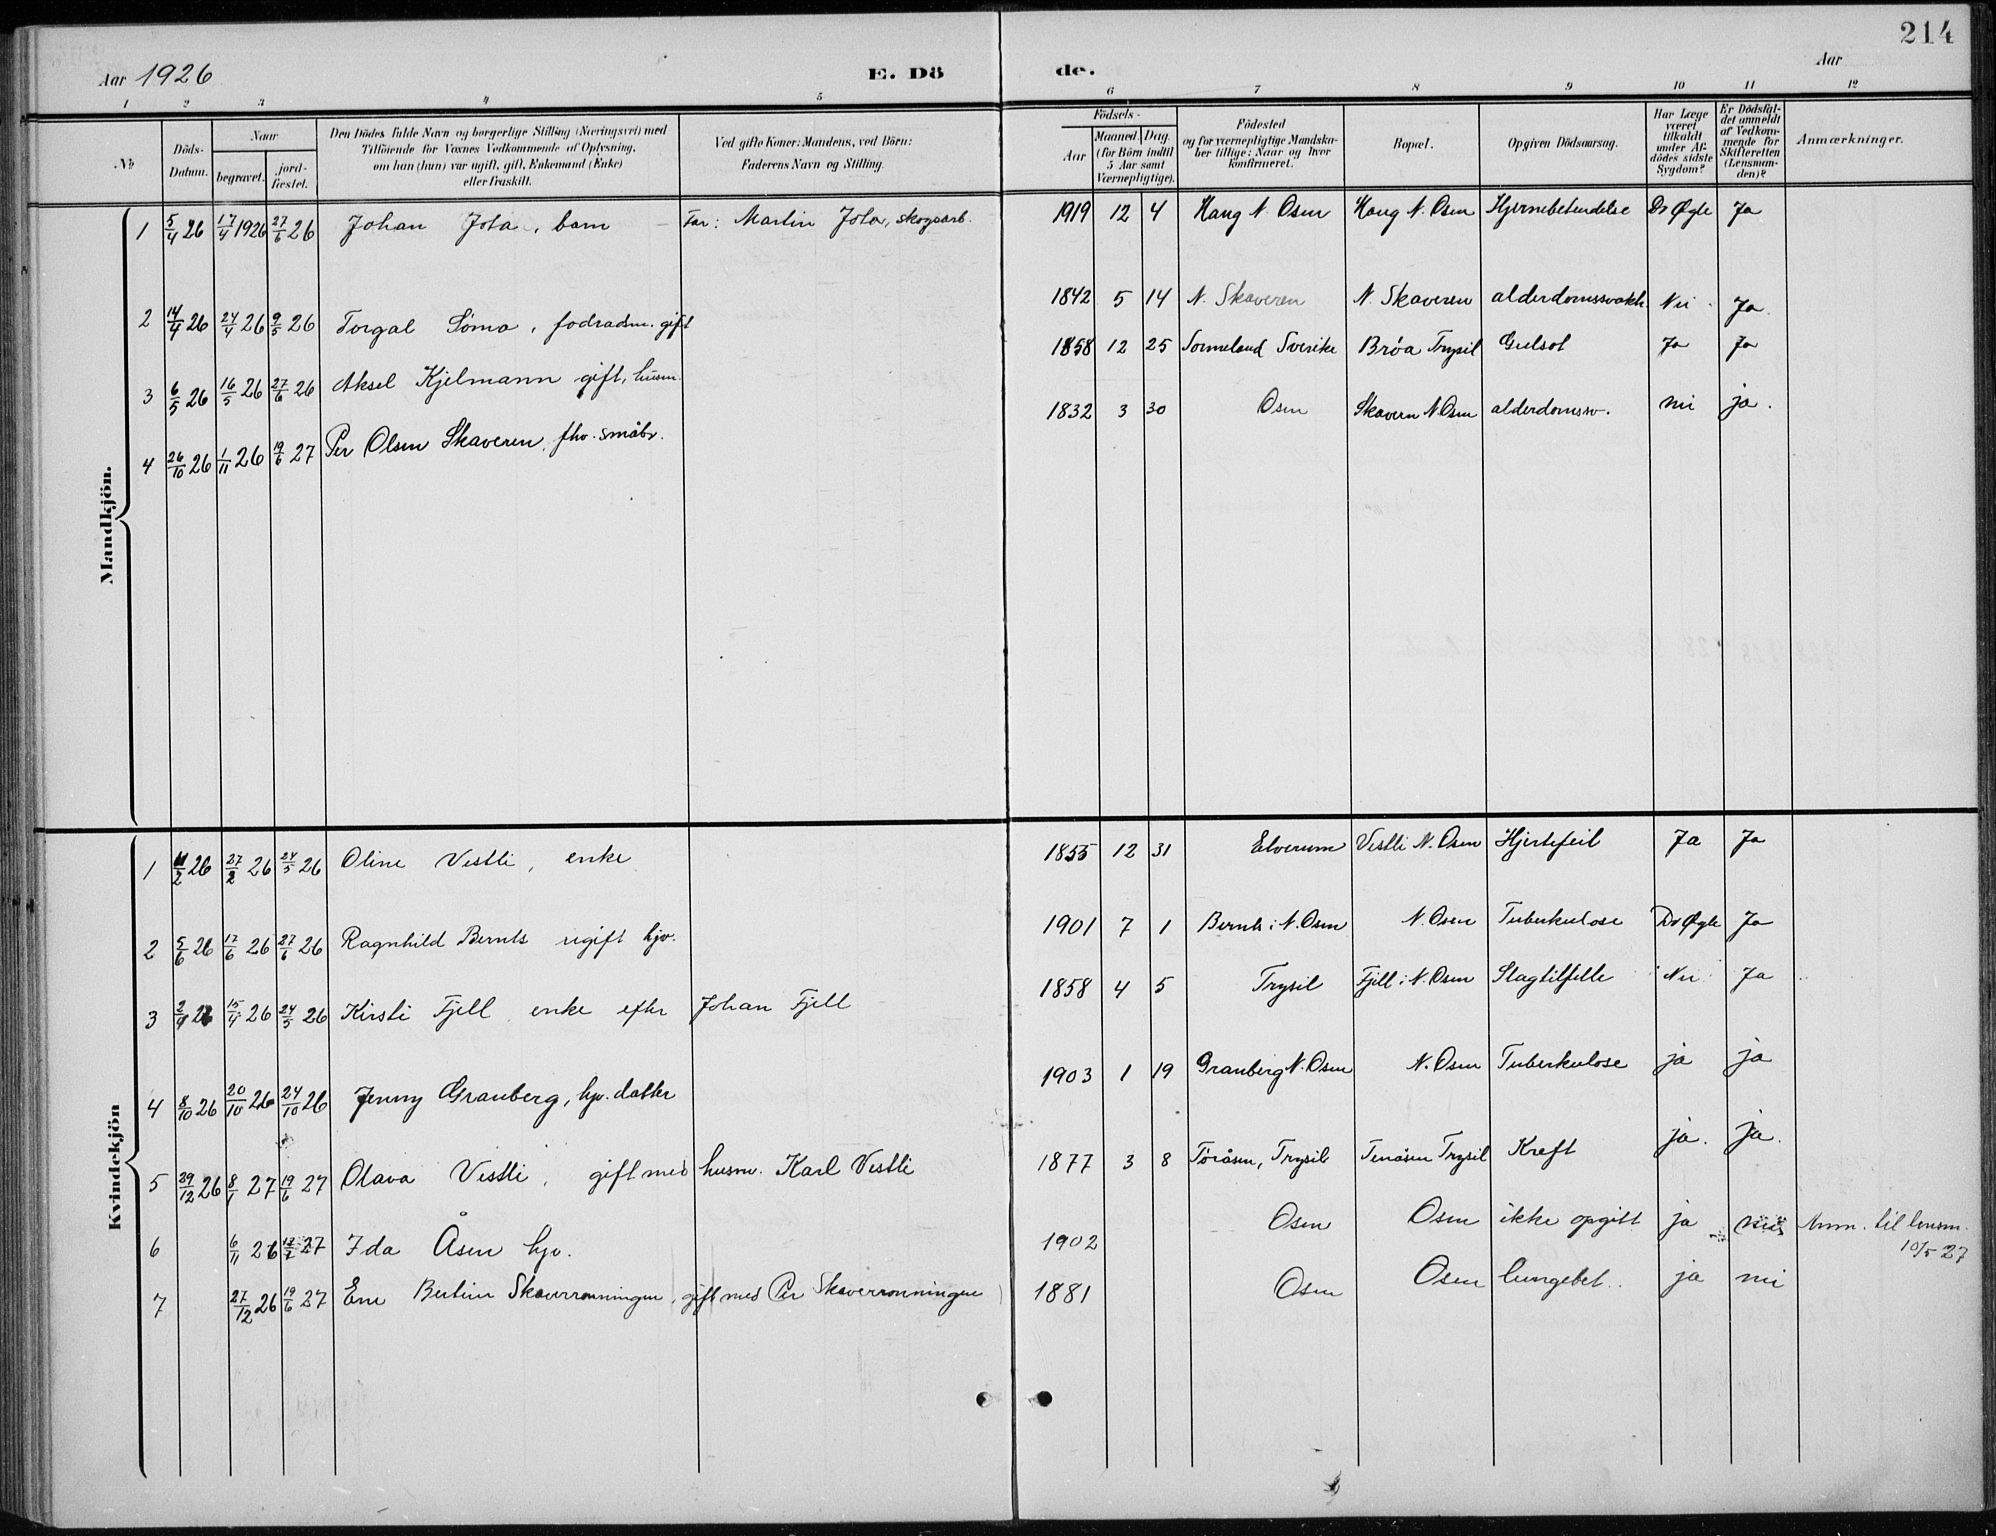 214
Aar 1926 E. Dö de. Aar
1 2 3 4 5 6 7 8 9 10 11 12
№ Döds-Datum. Naar begravet. jord-fæstet. Den Dödes fulde Navn og borgerlige Stilling (Næringsvei) med Tilföiende for Voxnes Vedkommende af Oplysning, om han (hun) var ugift, gift, Enkemand (Enke) eller fraskilt. Ved gifte Koner: Mandens, ved Börn: Faderens Navn og Stilling. Födsels- Aar Maaned. Dag. (for Börn indtil 5 Aar samt Værnepligtige). Födested og for værnepligtige Mandskaber tillige: Naar og hvor konfirmeret. Bopæl. Opgiven Dödsaarsag. Har Læge været tilkaldt under Afdödes sidste Sygdom? Er Dödsfaldet anmeldt af Vedkommende for Skifteretten (Lensmanden)? Anmærkninger.
Mandkjön.
1 5/4 26 17/4 1926 27/6 26 Johan Jota, barn Far: Martin Jota, skogsarb. 1919 12 4 Haug N. Osen Haug N. Osen Hjernebetendelse Dr Øgle Ja
2 14/4 26 24/4 26 9/5 26 Torgal Sömo, fodradsm. gift 1842 5 14 N. Skaveren N. Skaveren alderdomssvakh Nei Ja.
3 6/5 26 16/5 26 27/6 26 Aksel Kjelmann gift, husm. 1858 12 25 Sverike Bröa Trysil Gulsot Ja Ja
4 26/10 26 1/11 26 19/6 27 Per Olsen Skaveren, fhv. småbr. 1832 3 30 Osen Skavern N Osen alderdomssv. nei ja.
Kvindekjön
1 11/2 26 27/2 26 24/5 26 Oline Vestli, enke 1855 12 31 Elverum Vestli N. Osen Hjertefeil Ja Ja
2 5/6 26 17/6 26 27/6 26 Ragnhild Bernts ugift hjv. 1901 7 1 Bernts i N. Osen N. Osen Tuberkulose Dr Øgle Ja
3 2/4 26 15/4 26 24/5 26 Kirsti Fjell enke efter Johan Fjell 1858 4 5 Trysil Fjell i N. Osen Slagtilfelle Nei Ja
4 8/10 26 20/10 26 24/10 26 Jenny Granberg, hjv. datter 1903 1 19 Granberg N. Osen N. Osen Tuberkulose ja ja
5 29/12 26 8/1 27 19/6 27 Olava Vestli, gift med husm. Karl Vestli 1877 3 8 Töråsen, Trysil Trysil Kreft ja. ja.
6 6/11 26 27 Ida Åsen hjv. 1902 Osen Osen ikke opgitt ja nei Anm. til lensm. 10/5 27
7 27/12 26 19/6 27 Ene Skaverrönningen, gift med Per Skaverronningen 1881 Osen Osen lungebet. ja nei